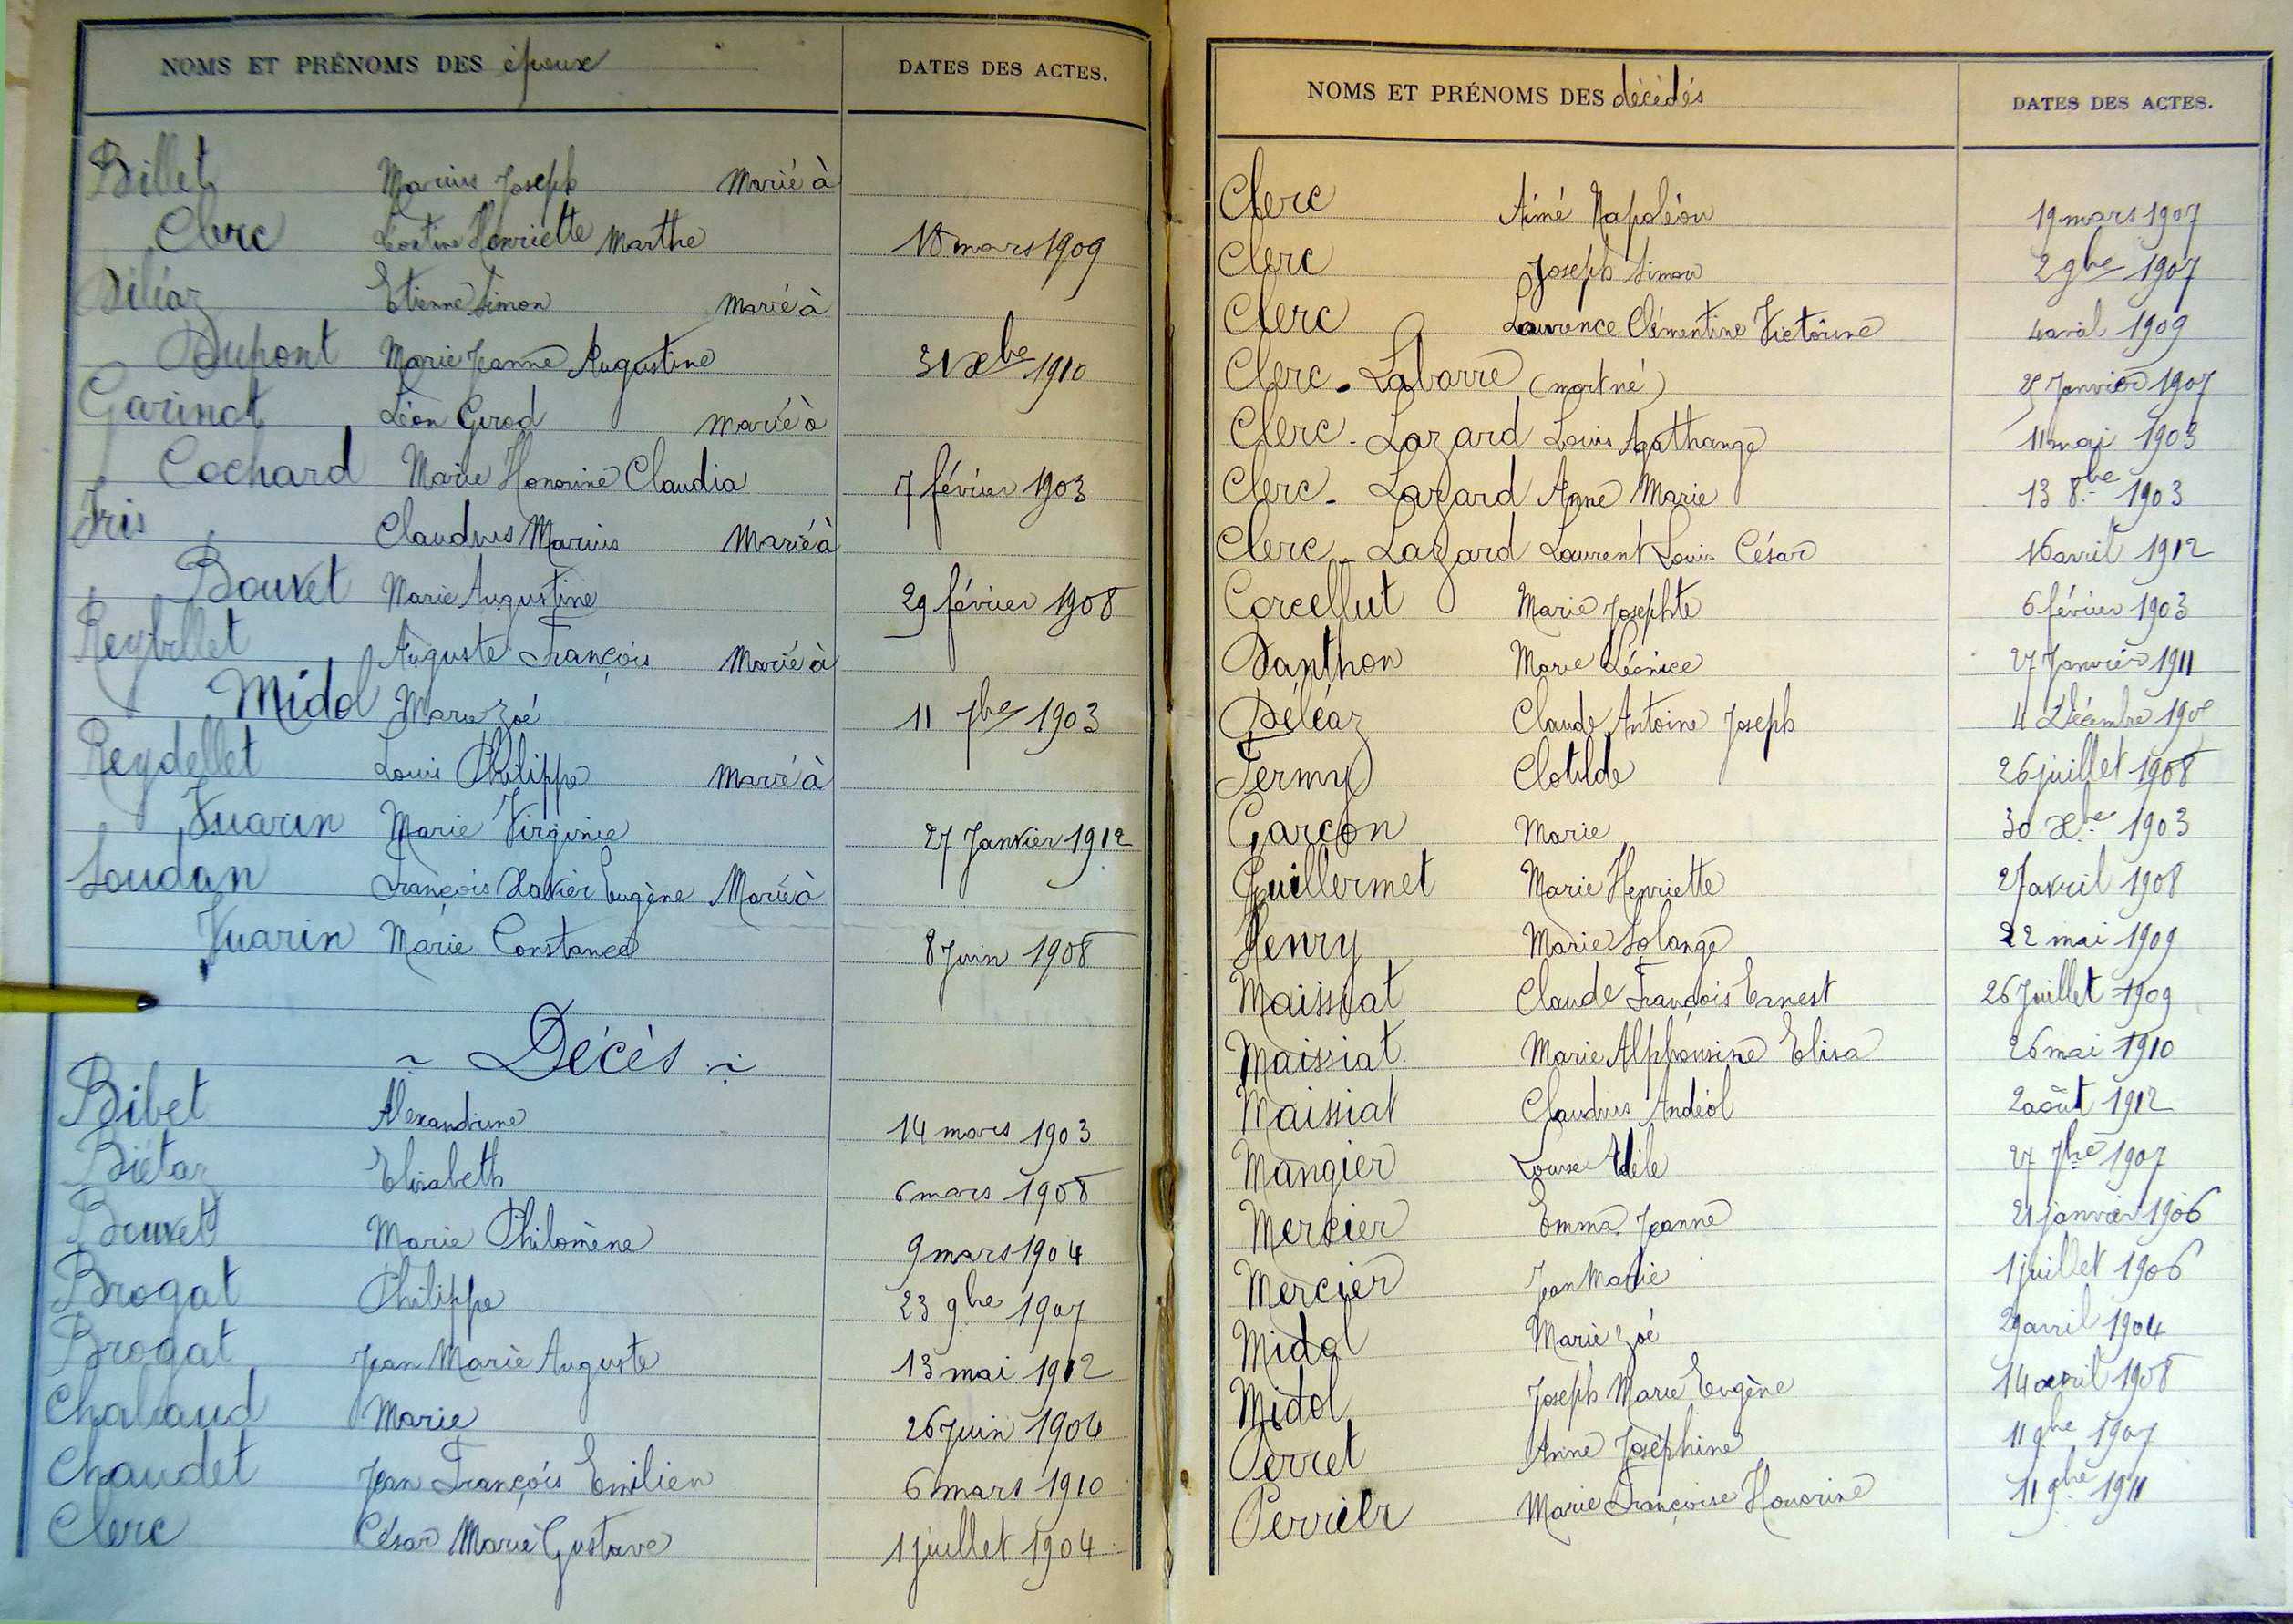 NOMS ET PRÉNOMS DES époux DATES DES ACTES.
Billet Marius Joseph Marié à
Clerc Léontine Henriette Marthe 18 mars 1909
Déléaz Etienne Simon Marié à
Dupont Marie Jeanne Augustine 31 Xbre 1910
Garinot Léon Girod Marié à
Cochard Marie Honorine Claudia 7 février 1903
Iris Claudius Marius Marié à
Bouvet Marie Augustine 29 février 1908
Reydellet Auguste François Marié à
Midol Marie Zoé 11 7bre 1903
Reydellet Louis Philippe Marié à
Vuarin Marie Virginie 27 Janvier 1912
Soudan François Xavier Eugène Marié à
Vuarin Marie Constance 8 Juin 1908
~ Décès ~
Bibet Alexandrine 14 mars 1903
Biétaz Elisabeth 6 mars 1908
Bouvet Marie Philomène 9 mars 1904
Brogat Philippe 23 9bre 1907
Brogat Jean Marie Auguste 13 mai 1912
Chabaud Marie 26 Juin 1904
Chaudet Jean François Emilien 6 mars 1910
Clerc César Marie Gustave 1 juillet 1904
NOMS ET PRÉNOMS DES décédés DATES DES ACTES.
Clerc Aimé Napoléon 19 mars 1907
Clerc Joseph Simon 2 9bre 1907
Clerc Laurence Clémentine Victorine 4 avril 1909
Clerc-Labarre (mort né) Janvier 1907
Clerc-Lazard Louis Agathange 11 mai 1903
Clerc-Lazard Anne Marie 13 8bre 1903
Clerc-Lazard Laurent Louis César 16 avril 1912
Corcellut Marie Josephte 6 février 1903
Danthon Marie Léonice 27 Janvier 1911
Déléaz Claude Antoine Joseph 4 Décembre
Fermy Clotilde 26 juillet 1908
Garçon Marie 30 Xbre 1903
Guillermet Marie Henriette 27 avril 1908
Henry Marie Solange 22 mai 1909
Maissiat Claude François Ernest 26 Juillet 1909
Maissiat Marie Alphonsine Elisa 26 mai 1910
Maissiat Claudius Andéol 2 août 1912
Mangier Louise Adèle 27 7bre 1907
Mercier Emma Jeanne 21 janvier 1906
Mercier Jean Marie 1 juillet 1906
Midol Marie Zoé 29 avril 1904
Midol Joseph Marie Eugène 14 avril 1908
Perret Anne Joséphine 11 9bre 1907
Perrier Marie Françoise Honorine 11 9bre 1911